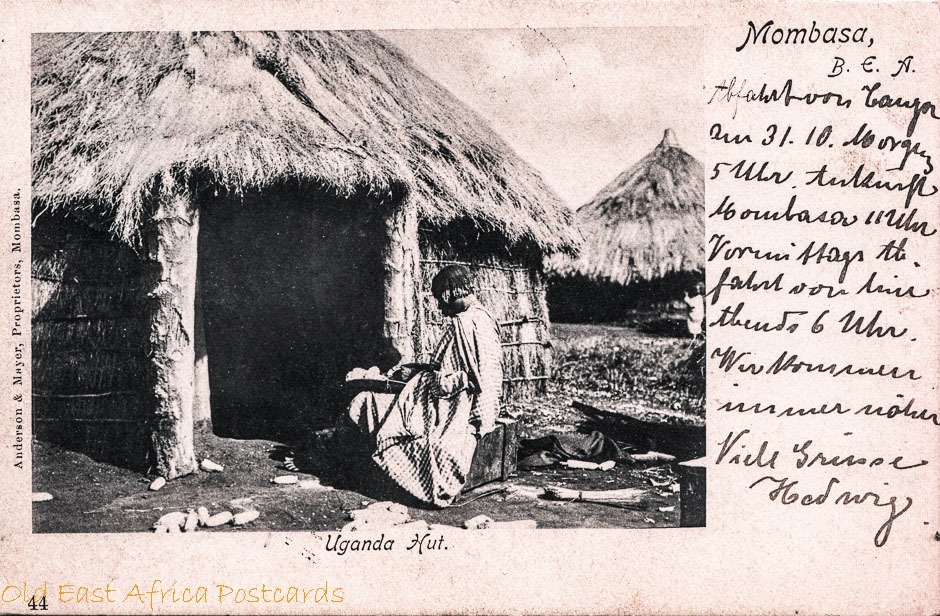 Mombasa,
B. E. A.
Abfahrt von Tanga
am 31. 10. Morgens
5 Uhr. Ankunft
Mombasa 11 Uhr
Vormittags Ab-
fahrt von hier
Abends 6 Uhr.
Wir kommen
immer näher
Viele Grüsse
Hedwig.
Anderson & Mayer, Proprietors, Mombasa.
Uganda Hut.
Old East Africa Postcards
44